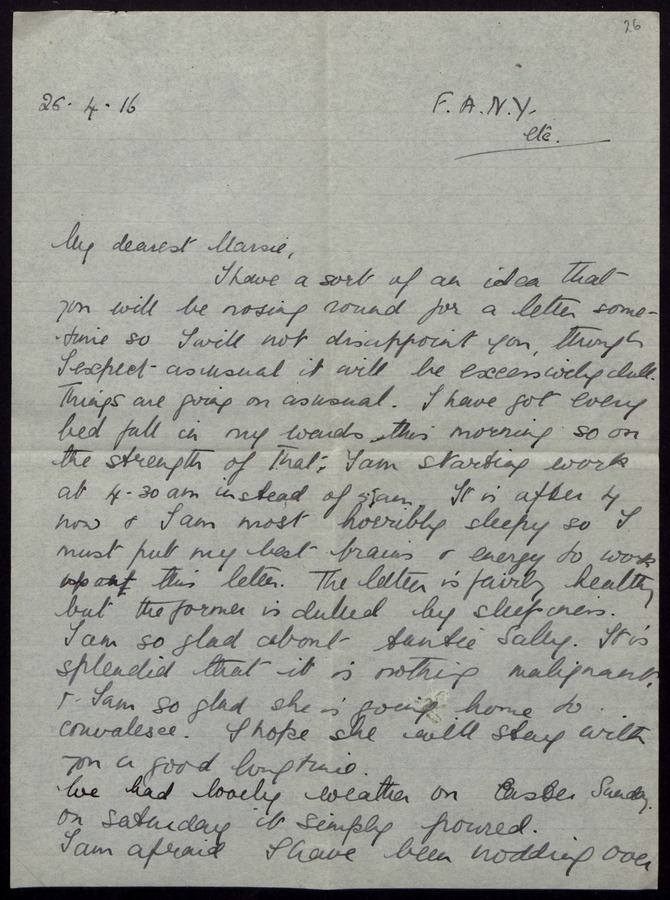 26
26·4·16 F.A.N.Y.
etc.
My dearest Marsie,
I have a sort of an idea that
you will be nosing round for a letter some-
time so I will not disappoint you, though
I expect as usual it will be excessively dull.
Things are going on as usual. I have got every
bed full in my wards this morning so on
the strength of that, I am starting work
at 4-30 am instead of 5 am. It is after 4
now & I am most horribly sleepy so I
must put my best brains & energy to work
upon this letter. The latter is fairly healthy
but the former is dulled by sleepiness.
I am so glad about Auntie Sally. It is
splendid that it is nothing malignant.
& I am so glad she is going home to
convalesce. I hope she will stay with
you a good long time.
We had lovely weather on Easter Sunday.
on Saturday it simply poured.
I am afraid I have been nodding over